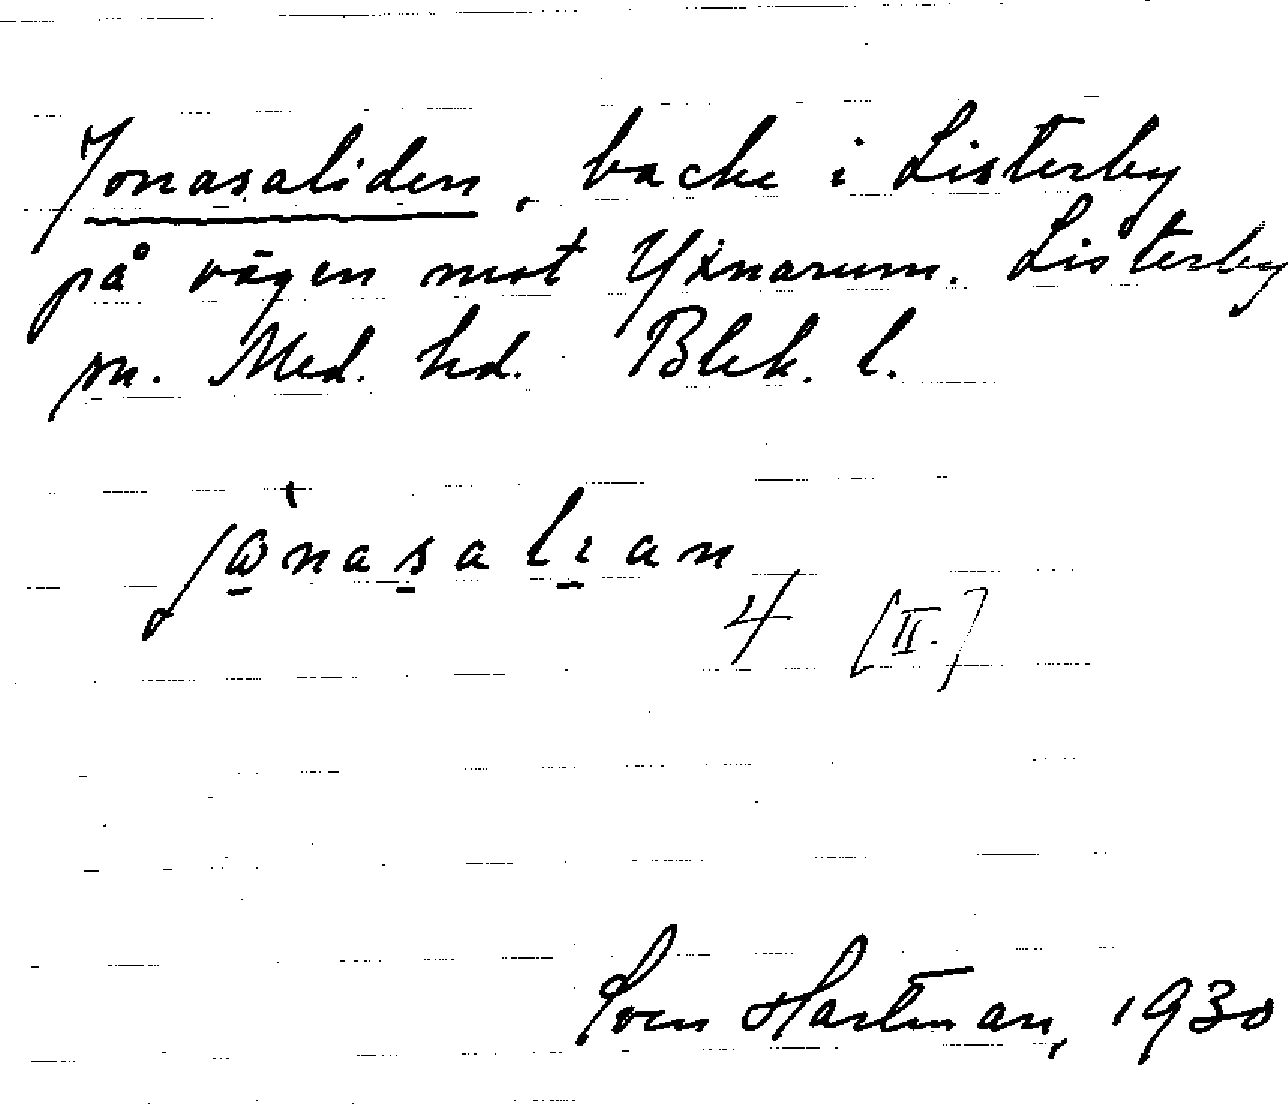 Jonasaliden, backe i Listerby
på vägen mot Yxnarum. Listerby
sn. Med. hd. Blek. l.
jὼ̲nas̲alı̲an
4 [II.]
Sven Hartman, 1930